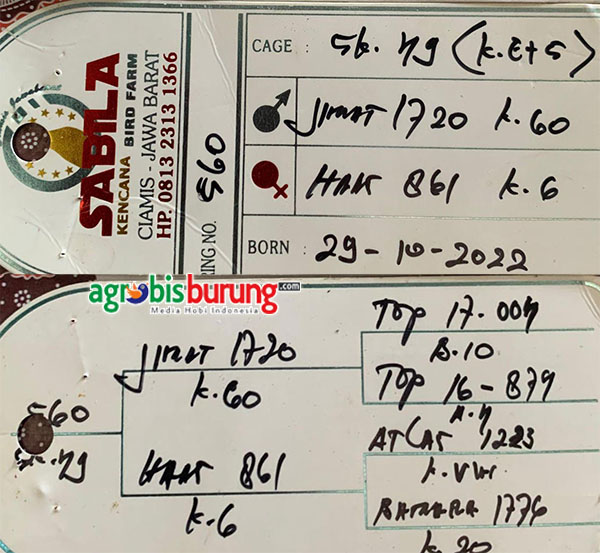 SABILA
KENCANA BIRD FARM
CIAMIS - JAWA BARAT
HP. 0813 2313 1366
RING NO. 560
CAGE : SK. 49 (K.E+S)
JIMAT 1720 K.60
HAK 861 K.6
BORN : 29-10-2022
agrobisburung.com
Media Hobi Indonesia
TOP 17.004
JIMAT 1720
B.10
K.60
TOP 16-879
560
SK.49
1223
HAK 861
K.VW.
K.6
1776
K.20